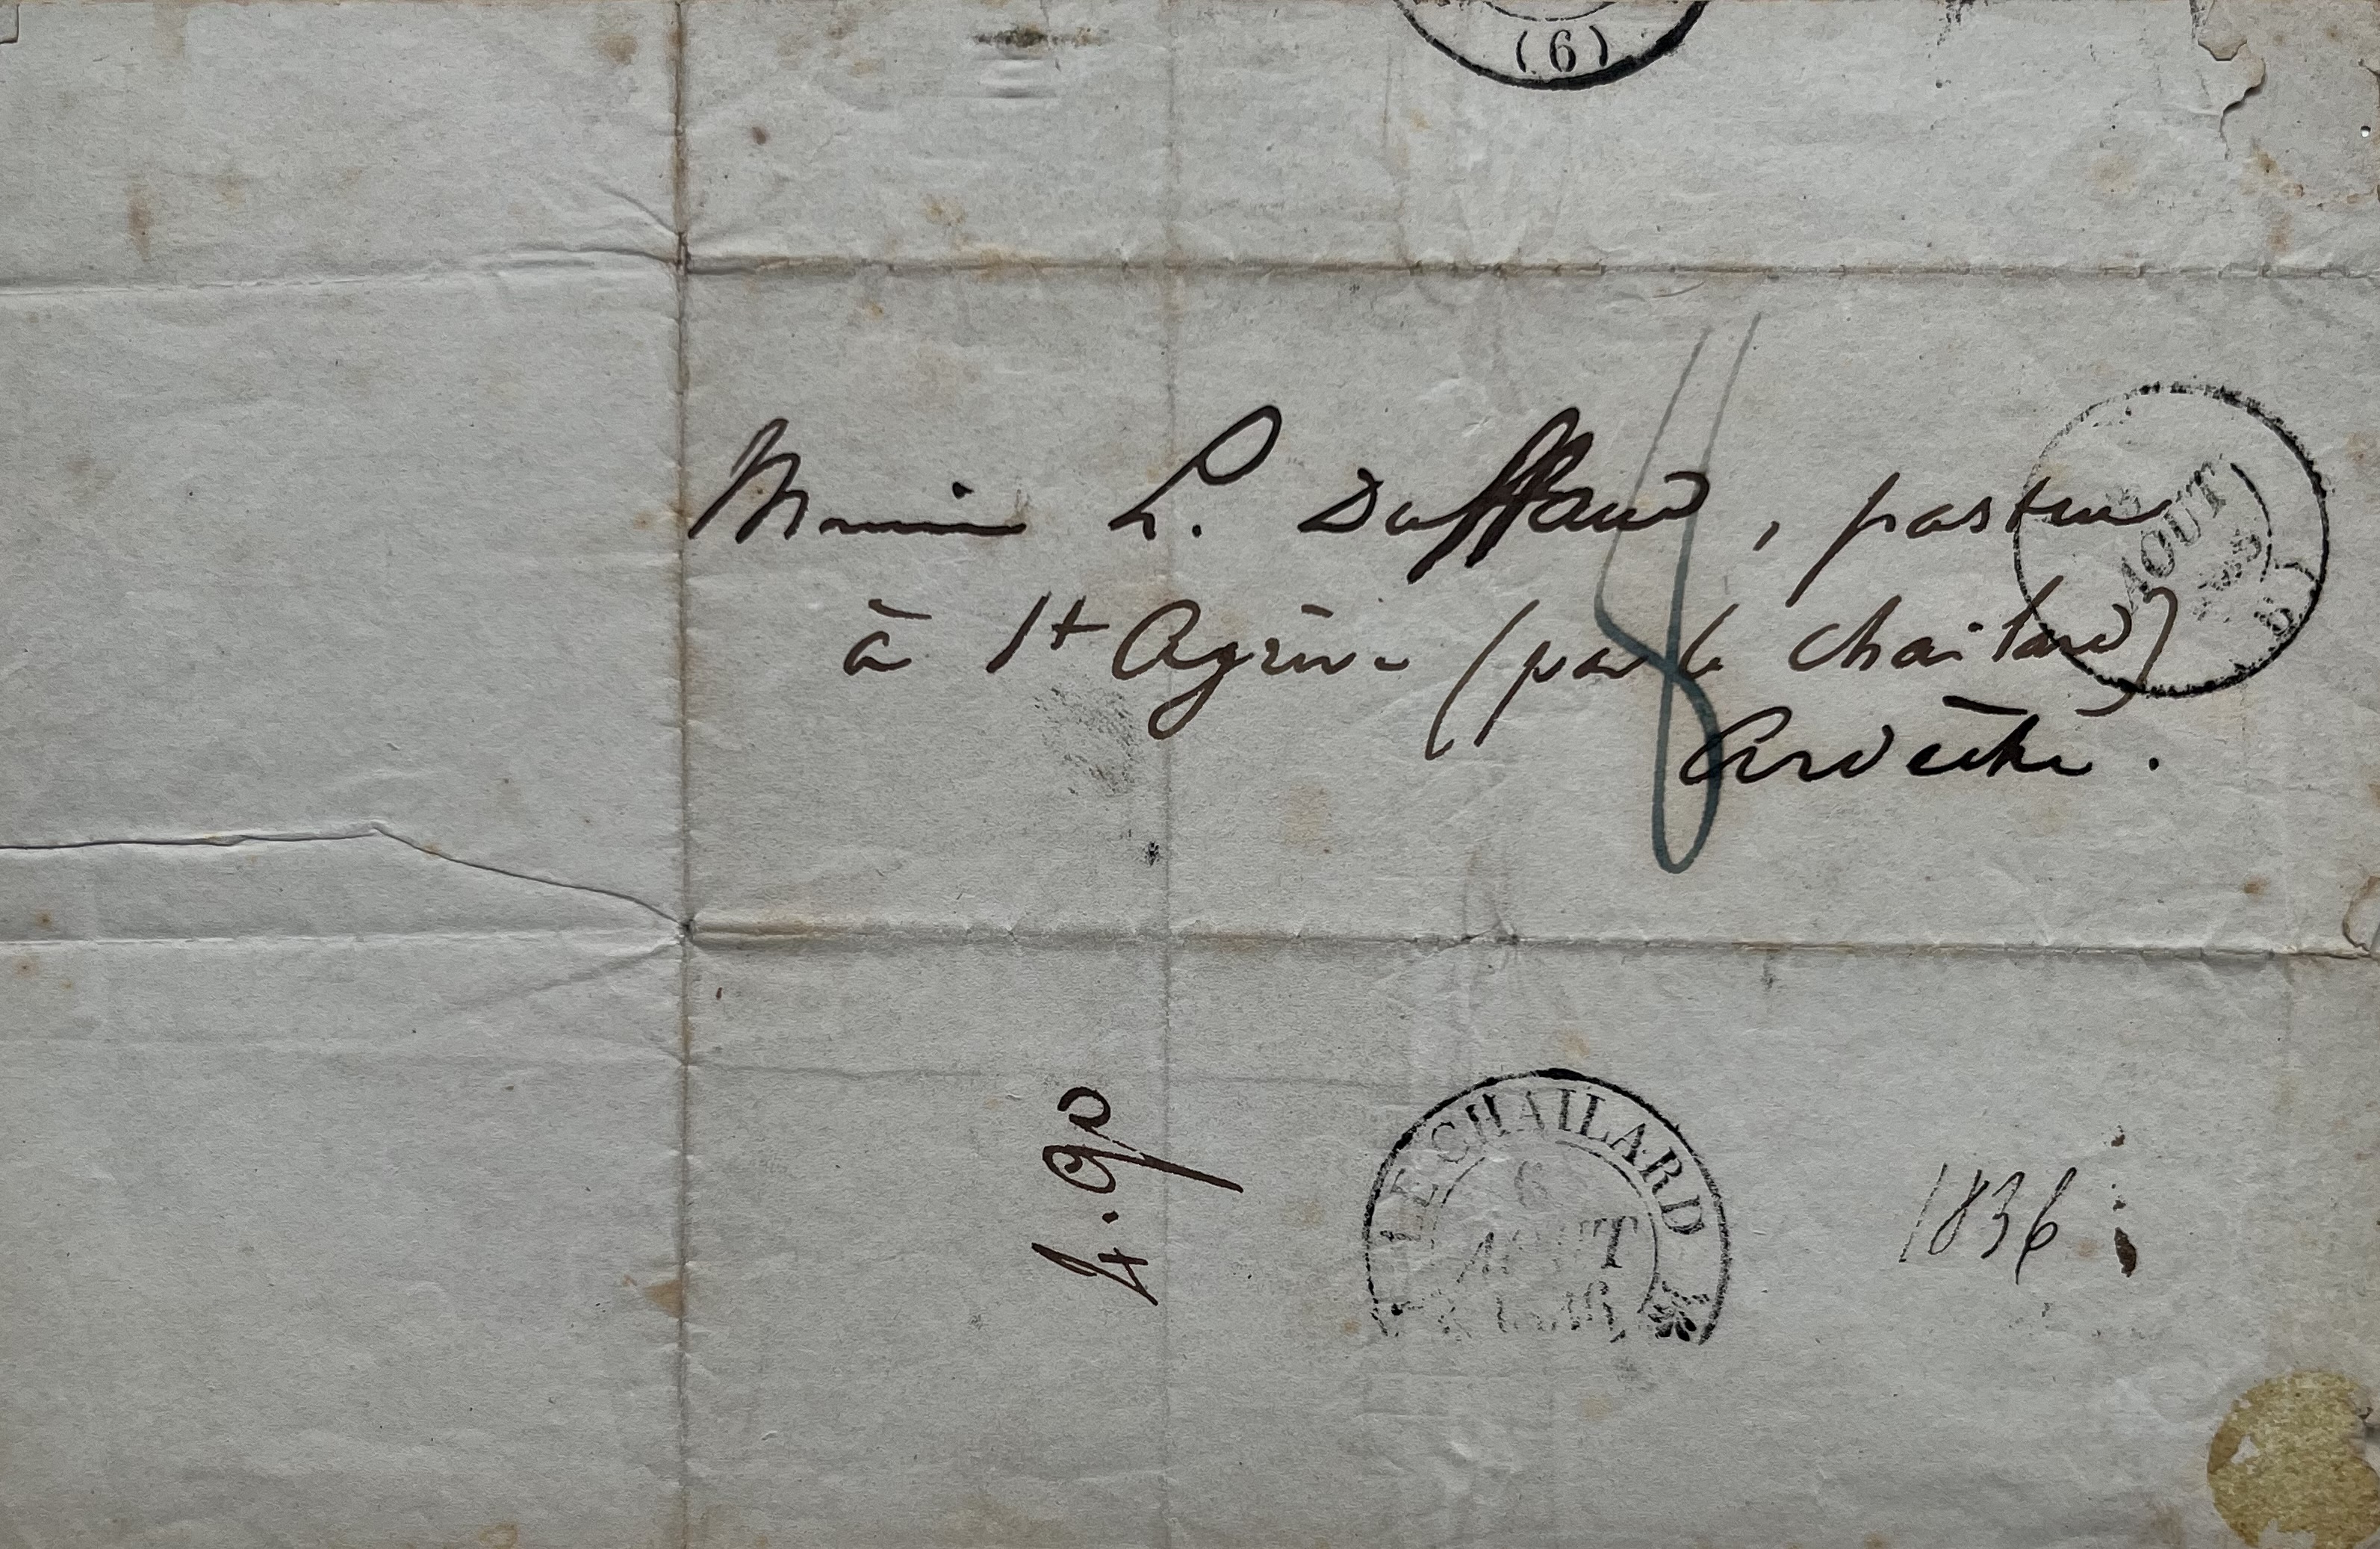 (6)
Monsieur L. Duffaud, pasteur
à St Agrève (par le Chailard)
Ardèche.
8
AOUT
4.90
LE CHAILARD
6
AOUT
1836